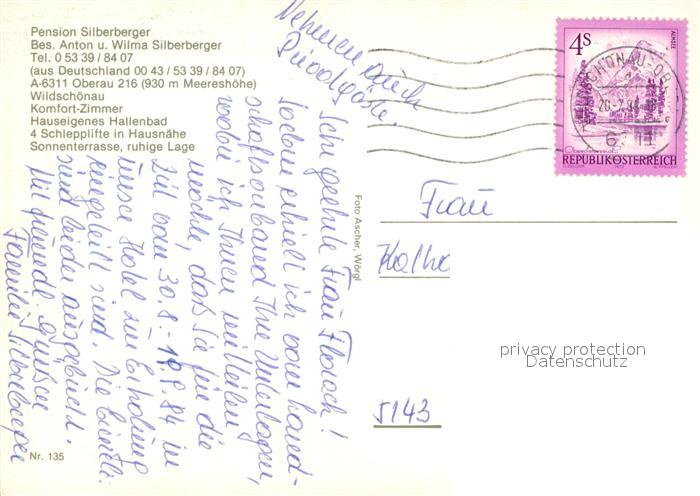 Pension Silberberger
Bes. Anton u. Wilma Silberberger
Tel. 0 53 39 / 84 07
(aus Deutschland 00 43 / 53 39 / 84 07)
A-6311 Oberau 216 (930 m Meereshöhe)
Wildschönau
Komfort-Zimmer
Hauseigenes Hallenbad
4 Schlepplifte in Hausnähe
Sonnenterrasse, ruhige Lage
Nr. 135
Nehmen auch
Privatgäste.
Sehr geehrte Frau
soeben erhielt ich vom Land-
schaftsverband Ihre Unterlagen,
wobei ich Ihnen mitteilen
möchte, daß Sie für die
Zeit vom 30.8. - 84 in
unser Hotel zur Erholung
eingeteilt sind. Die
sind leider ausgebucht.
Mit freundl. Grüssen
Familie Silberberger
Foto Ascher, Wörgl
4S
ALMSEE
REPUBLIK ÖSTERREICH
Frau
5143
privacy protection
Datenschutz